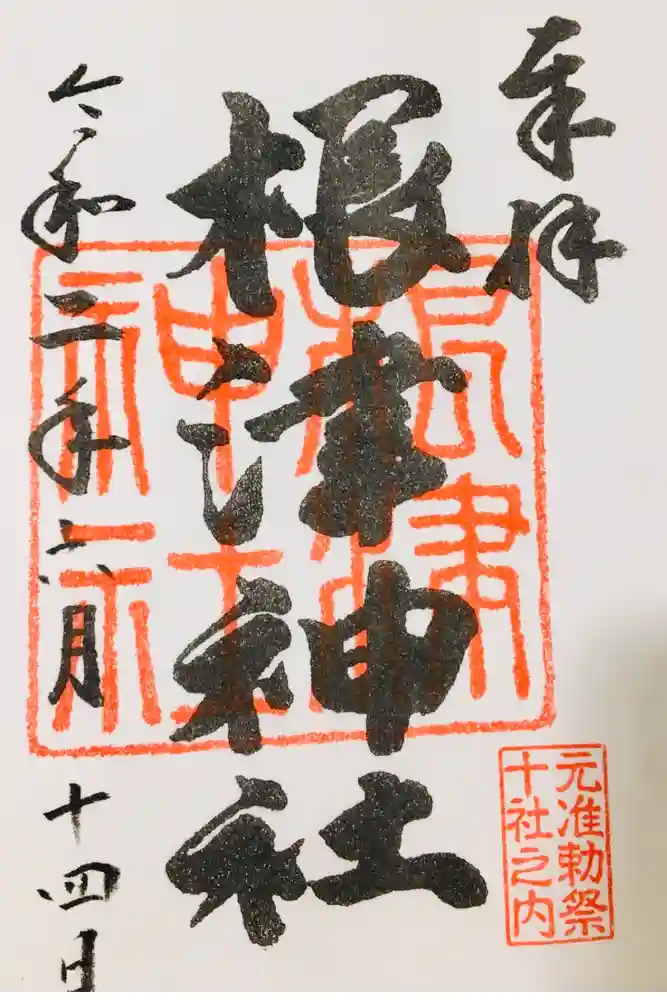 奉拝
元准勅祭
十社之内
根津神社
根津神社
令和二年六月十四日